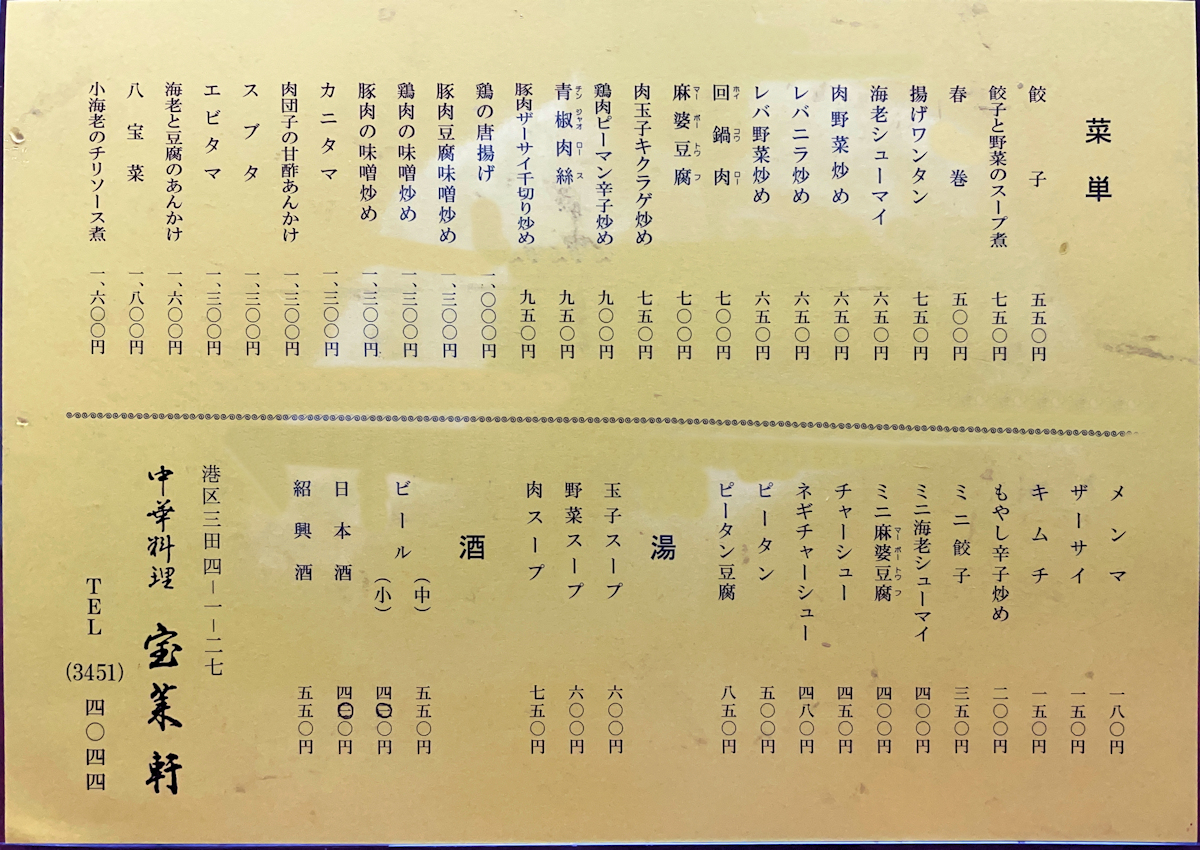 菜単
餃子 五五〇円
餃子と野菜のスープ煮 七五〇円
春巻 五〇〇円
揚げワンタン 七五〇円
海老シューマイ 六五〇円
肉野菜炒め 六五〇円
レバニラ炒め 六五〇円
レバ野菜炒め 六五〇円
回鍋肉 ホイコウロー 七〇〇円
麻婆豆腐 マーボートウフ 七〇〇円
肉玉子キクラゲ炒め 七五〇円
鶏肉ピーマン辛子炒め 九〇〇円
青椒肉絲 チンジャオロース 九五〇円
豚肉ザーサイ千切り炒め 九五〇円
鶏の唐揚げ 一、〇〇〇円
豚肉豆腐味噌炒め 一、三〇〇円
鶏肉の味噌炒め 一、三〇〇円
豚肉の味噌炒め 一、三〇〇円
カニタマ 一、三〇〇円
肉団子の甘酢あんかけ 一、三〇〇円
スブタ 一、三〇〇円
エビタマ 一、三〇〇円
海老と豆腐のあんかけ 一、六〇〇円
八宝菜 一、八〇〇円
小海老のチリソース煮 一、六〇〇円
メンマ 一八〇円
ザーサイ 一五〇円
キムチ 一五〇円
もやし辛子炒め 二〇〇円
ミニ餃子 三五〇円
ミニ海老シューマイ 四〇〇円
ミニ麻婆豆腐 マーボートウフ 四〇〇円
チャーシュー 四五〇円
ネギチャーシュー 四八〇円
ピータン 五〇〇円
ピータン豆腐 八五〇円
湯
玉子スープ 六〇〇円
野菜スープ 六〇〇円
肉スープ 七五〇円
酒
ビール (中) 五五〇円
(小) 四〇〇円
日本酒 四〇〇円
紹興酒 五五〇円
港区三田四-一-二七
中華料理 宝莱軒
TEL (3451) 四〇四四